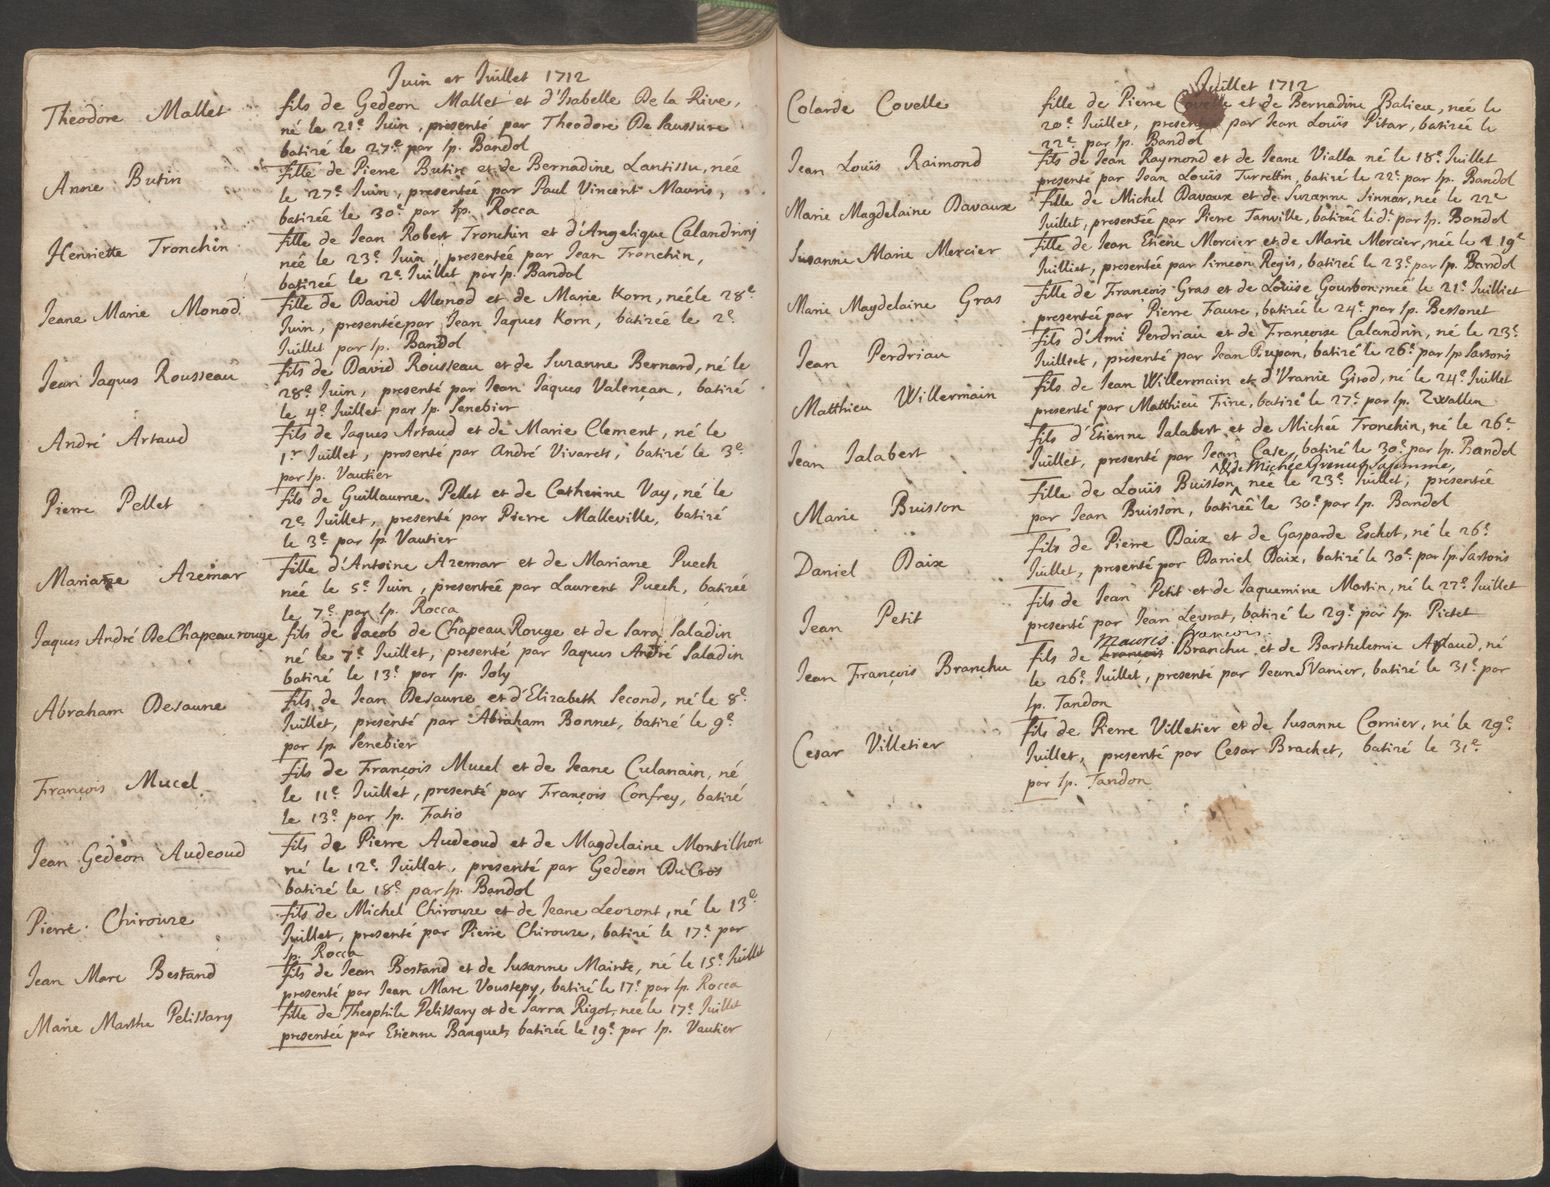 Juin et Juillet 1712
Theodore Mallet
fils de Gedeon Mallet et d'Isabelle De la Rive,
né le 21e Juin, presenté par Theodore De Saussure
batizé le 27e par Sp. Bandol
Anne Butin
fille de Pierre Butin et de Bernadine Lantissu, née
le 27e Juin, presentée par Paul Vincent Mauris,
batizée le 30e par Sp. Rocca
Henriette Tronchin
fille de Jean Robert Tronchin et d'Angelique Calandrini
née le 23e Juin, presentée par Jean Tronchin,
batizée le 2e Juillet par Sp. Bandol
Jeane Marie Monod
fille de David Monod et de Marie Korn, née le 28e
Juin, presentée par Jean Jaques Korn, batizée le 2e
Juillet par Sp. Bandol
Jean Jaques Rousseau
fils de David Rousseau et de Suzanne Bernard, né le
28e Juin, presenté par Jean Jaques Valençan, batizé
le 4e Juillet par Sp. Senebier
André Artaud
fils de Jaques Artaud et de Marie Clement, né le
1r Juillet, presenté par André Vivarets, batizé le 3e
par Sp. Vautier
Pierre Pellet
fils de Guillaume Pellet et de Catherine Vay, né le
2e Juillet, presenté par Pierre Malleville, batizé
le 3e par Sp. Vautier
Mariane Azemar
fille d'Antoine Azemar et de Mariane Puech
née le 5e Juin, presentée par Laurent Puech, batizée
le 7e par Sp. Rocca
Jaques André De Chapeaurouge
fils de Jacob de Chapeau Rouge et de Sara Saladin
né le 7e Juillet, presenté par Jaques André Saladin
batizé le 13e par Sp. Joly
Abraham Desaune
fils de Jean Desaune et d'Elizabeth Second, né le 8e
Juillet, presenté par Abraham Bonnet, batizé le 9e
par Sp. Senebier
François Mucel
fils de François Mucel et de Jeane Culanain, né
le 11e Juillet, presenté par François Confrey, batizé
le 13e par Sp. Fatio
Jean Gedeon Audeoud
fils de Pierre Audeoud et de Magdelaine Montilhon
né le 12e Juillet, presenté par Gedeon DuCros
batizé le 18e par Sp. Bandol
Pierre Chirouze
fils de Michel Chirouze et de Jeane Leozont, né le 13e
Juillet, presenté par Pierre Chirouze, batizé le 17e par
Sp. Rocca
Jean Marc Bestand
fils de Jean Bostand et de Susanne Mainte, né le 15e Juillet
presenté par Jean Marc Voustepy, batizé le 17e par Sp. Rocca
Marie Marthe Pelissary
fille de Theophile Pelissary et de Sarra Rigot, née le 17e Juillet
presentée par Etienne Banquets batizée le 19e par Sp. Vautier
Juillet 1712
Colarde Covelle
fille de Pierre Covelle et de Bernadine Balieu, née le
20e Juillet, presentée par Jean Louïs Pitar, batizée le
22e par Sp. Bandol
Jean Louïs Raimond
fils de Jean Raymond et de Jeane Vialla né le 18e Juillet
presenté par Jean Louïs Turrettin, batizé le 22e par Sp. Bandol
Marie Magdelaine Davaux
fille de Michel Davaux et de Suzanne Sinnar, née le 22e
Juillet, presentée par Pierre Tanville, batizée le d. par Sp. Bandol
Susanne Marie Mercier
fille de Jean Etiene Mercier et de Marie Mercier, née le 19e
Juilliet, presentée par Simeon Regis, batizeé le 23e par Sp. Bandol
Marie Magdelaine Gras
fille de François Gras et de Louïse Gourbon, née le 21e Juilliet
presentée par Pierre Faure, batizée le 24e par Sp. Bessonet
Jean Perdriau
fils d'Ami Perdriau et de Françoise Calandrin, né le 23e
Juillet, presenté par Jean Dupan, batizé le 26e par Sp Sartoris
Matthieu Willermain
fils de Jean Willermain et d'Uranie Girod, né le 24e Juillet
presenté par Matthieu Frine, batizé le 27e par Sp. Zwallen
Jean Jalabert
fils d'Etienne Jalabert et de Michée Tronchin, né le 26e
Juillet, presenté par Jean Case, batizé le 30e par Sp. Bandol
& de Michée Grenus sa femme,
Marie Buisson
fille de Louïs Buisson, née le 23e Juillet, presentée
par Jean Buisson, batizée le 30e par Sp. Bandol
Daniel Daix
fils de Pierre Daix et de Gasparde Eschot, né le 26e
Juillet, presenté par Daniel Daix, batizé le 30e par Sp. Sartoris
Jean Petit
fils de Jean Petit et de Jaquemine Martin, né le 27e Juillet
presenté par Jean Levrat, batizé le 29e par Sp. Pictet
Jean François Branchu
Mauris françois
fils de François Branchu et de Barthelemie Artaud, né
le 26e Juillet, presenté par Jean Evanier, batizé le 31e par
Sp. Tandon
Cesar Villetier
fils de Pierre Villetier et de Susanne Cornier, né le 29e
Juillet, presenté par Cesar Brachet, batizé le 31e
par Sp. Tandon